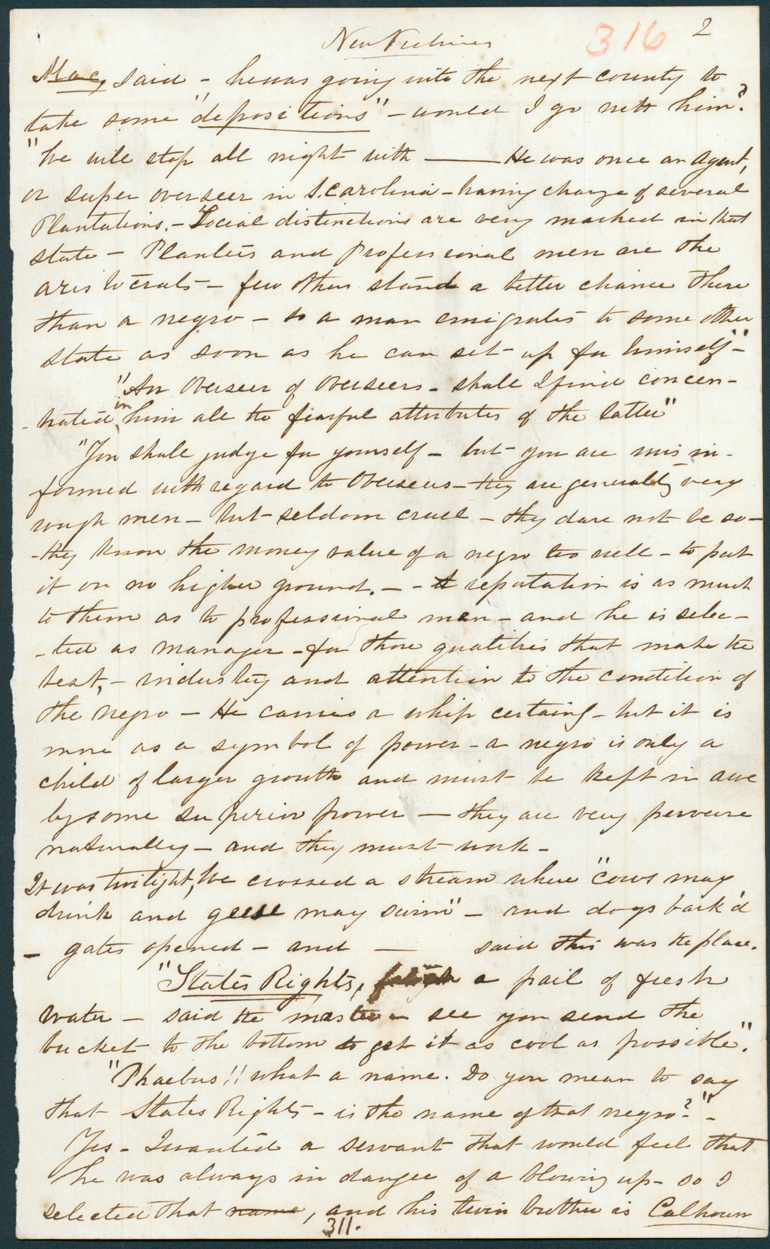 316 2
Mac, said - he was going into the next county to
take some "depositions" - would I go with him?
"We will stop all night with ——— He was once an Agent,
or super overseer in S. Carolina - having charge of several
Plantations. - Social distinctions are very marked in that
state - Planters and Professional men are the
aristocrats - few others stand a better chance there
than a negro - so a man emigrates to some other
state as soon as he can set up for himself" -
"An Overseer of Overseers - shall I find concen-
-trated in him all the fearful attributes of the latter"
"You shall judge for yourself - but you are mis in-
formed with regard to Overseers - they are generally very
rough men - but seldom cruel - they dare not be so -
- they know the money value of a negro too well - to put
it on no higher ground. - - A reputation is as much
to them as to professional men - and he is selec-
-ted as manager - for those qualities that make the
best, - industry and attention to the condition of
the negro - He carries a whip certainly - but it is
more as a symbol of power - a negro is only a
child of larger growth and must be kept in awe
by some superior power — they are very perverse
naturally - and they must work -
It was twilight, We crossed a stream where "cows may
drink and geese may swim" - and dogs bark'd
- gates opened - and — said this was the place.
"States Rights, fetch a pail of fresh
water - said the master - see you send the
bucket to the bottom to get it as cool as possible".
"Phaebus!! what a name. Do you mean to say
that States Rights - is the name of that negro?" -
Yes - I wanted a servant that would feel that
he was always in danger of a blowing up - so I
selected that name, and his twin brother is Calhoun
311.